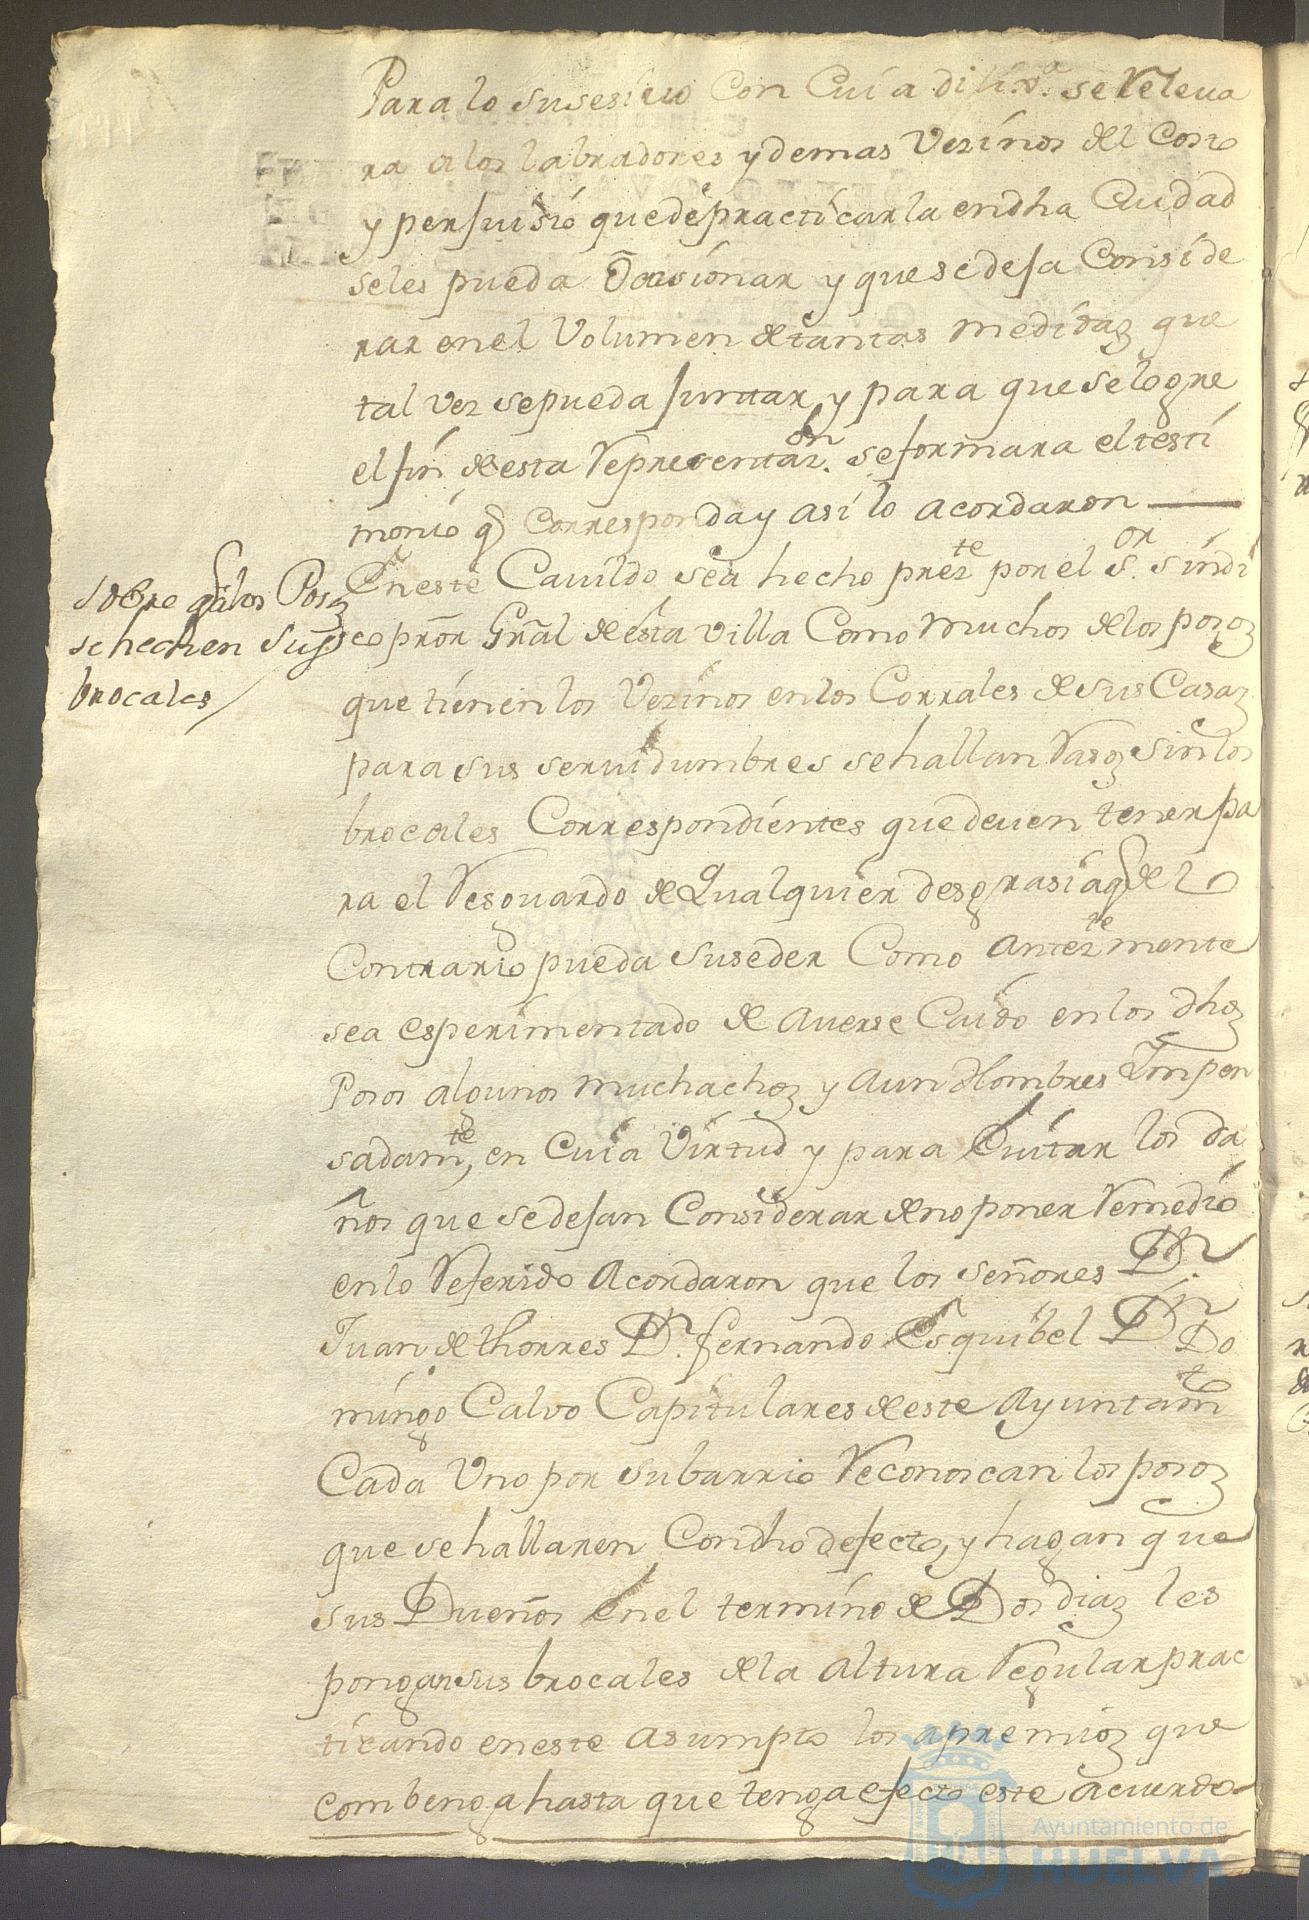 Para lo susesivo Con Cuia dilixª. se Releva
ra a los labradores y demas Vezinos del Costo
y persuisio que de practicarla en dha Ciudad
se les pueda Ocasionar y que se deja Conside
rar en el Volumen de tantas medidas que
tal vez se pueda juntar, y para que se logre
el fin de esta Representazon. se formara el testi
monio q Corresponda y asi lo acordaron
sobre q a los Posos
se hechen sus
brocales
En este Cavildo se a hecho prezte por el Sor. Sindi
co pror Gral de esta villa Como muchos de los posos
que tienen los Vezinos en los Corrales de sus Casas
para sus servidumbres se hallan Rasos sin los
brocales Correspondientes que deven tener pa
ra el Resguardo de Qualquier desgrasia q de lo
Contrario pueda suseder Como anteztemente
se a esperimentado de averse Caido en los dhos
Posos algunos muchachos y aun Hombres Impen
sadamte, en Cuia Virtud y para Evitar los da
ños que se dejan Considerar de no poner Remedio
en lo Referido Acordaron que los señores Dn.
Juan de thorres Dn. fernando Esquibel Dn Do
mingo Calvo Capitulares de este Ayuntamto
Cada Uno por su barrio Reconoscan los posos
que se hallaren Con dho defecto, y hagan que
sus Dueños en el termino de Dos dias les
pongan sus brocales de la altura Regular prac
ticando en este asumpto los apremios que
combenga hasta que tenga efecto este acuerdo
Ayuntamiento de
HUELVA